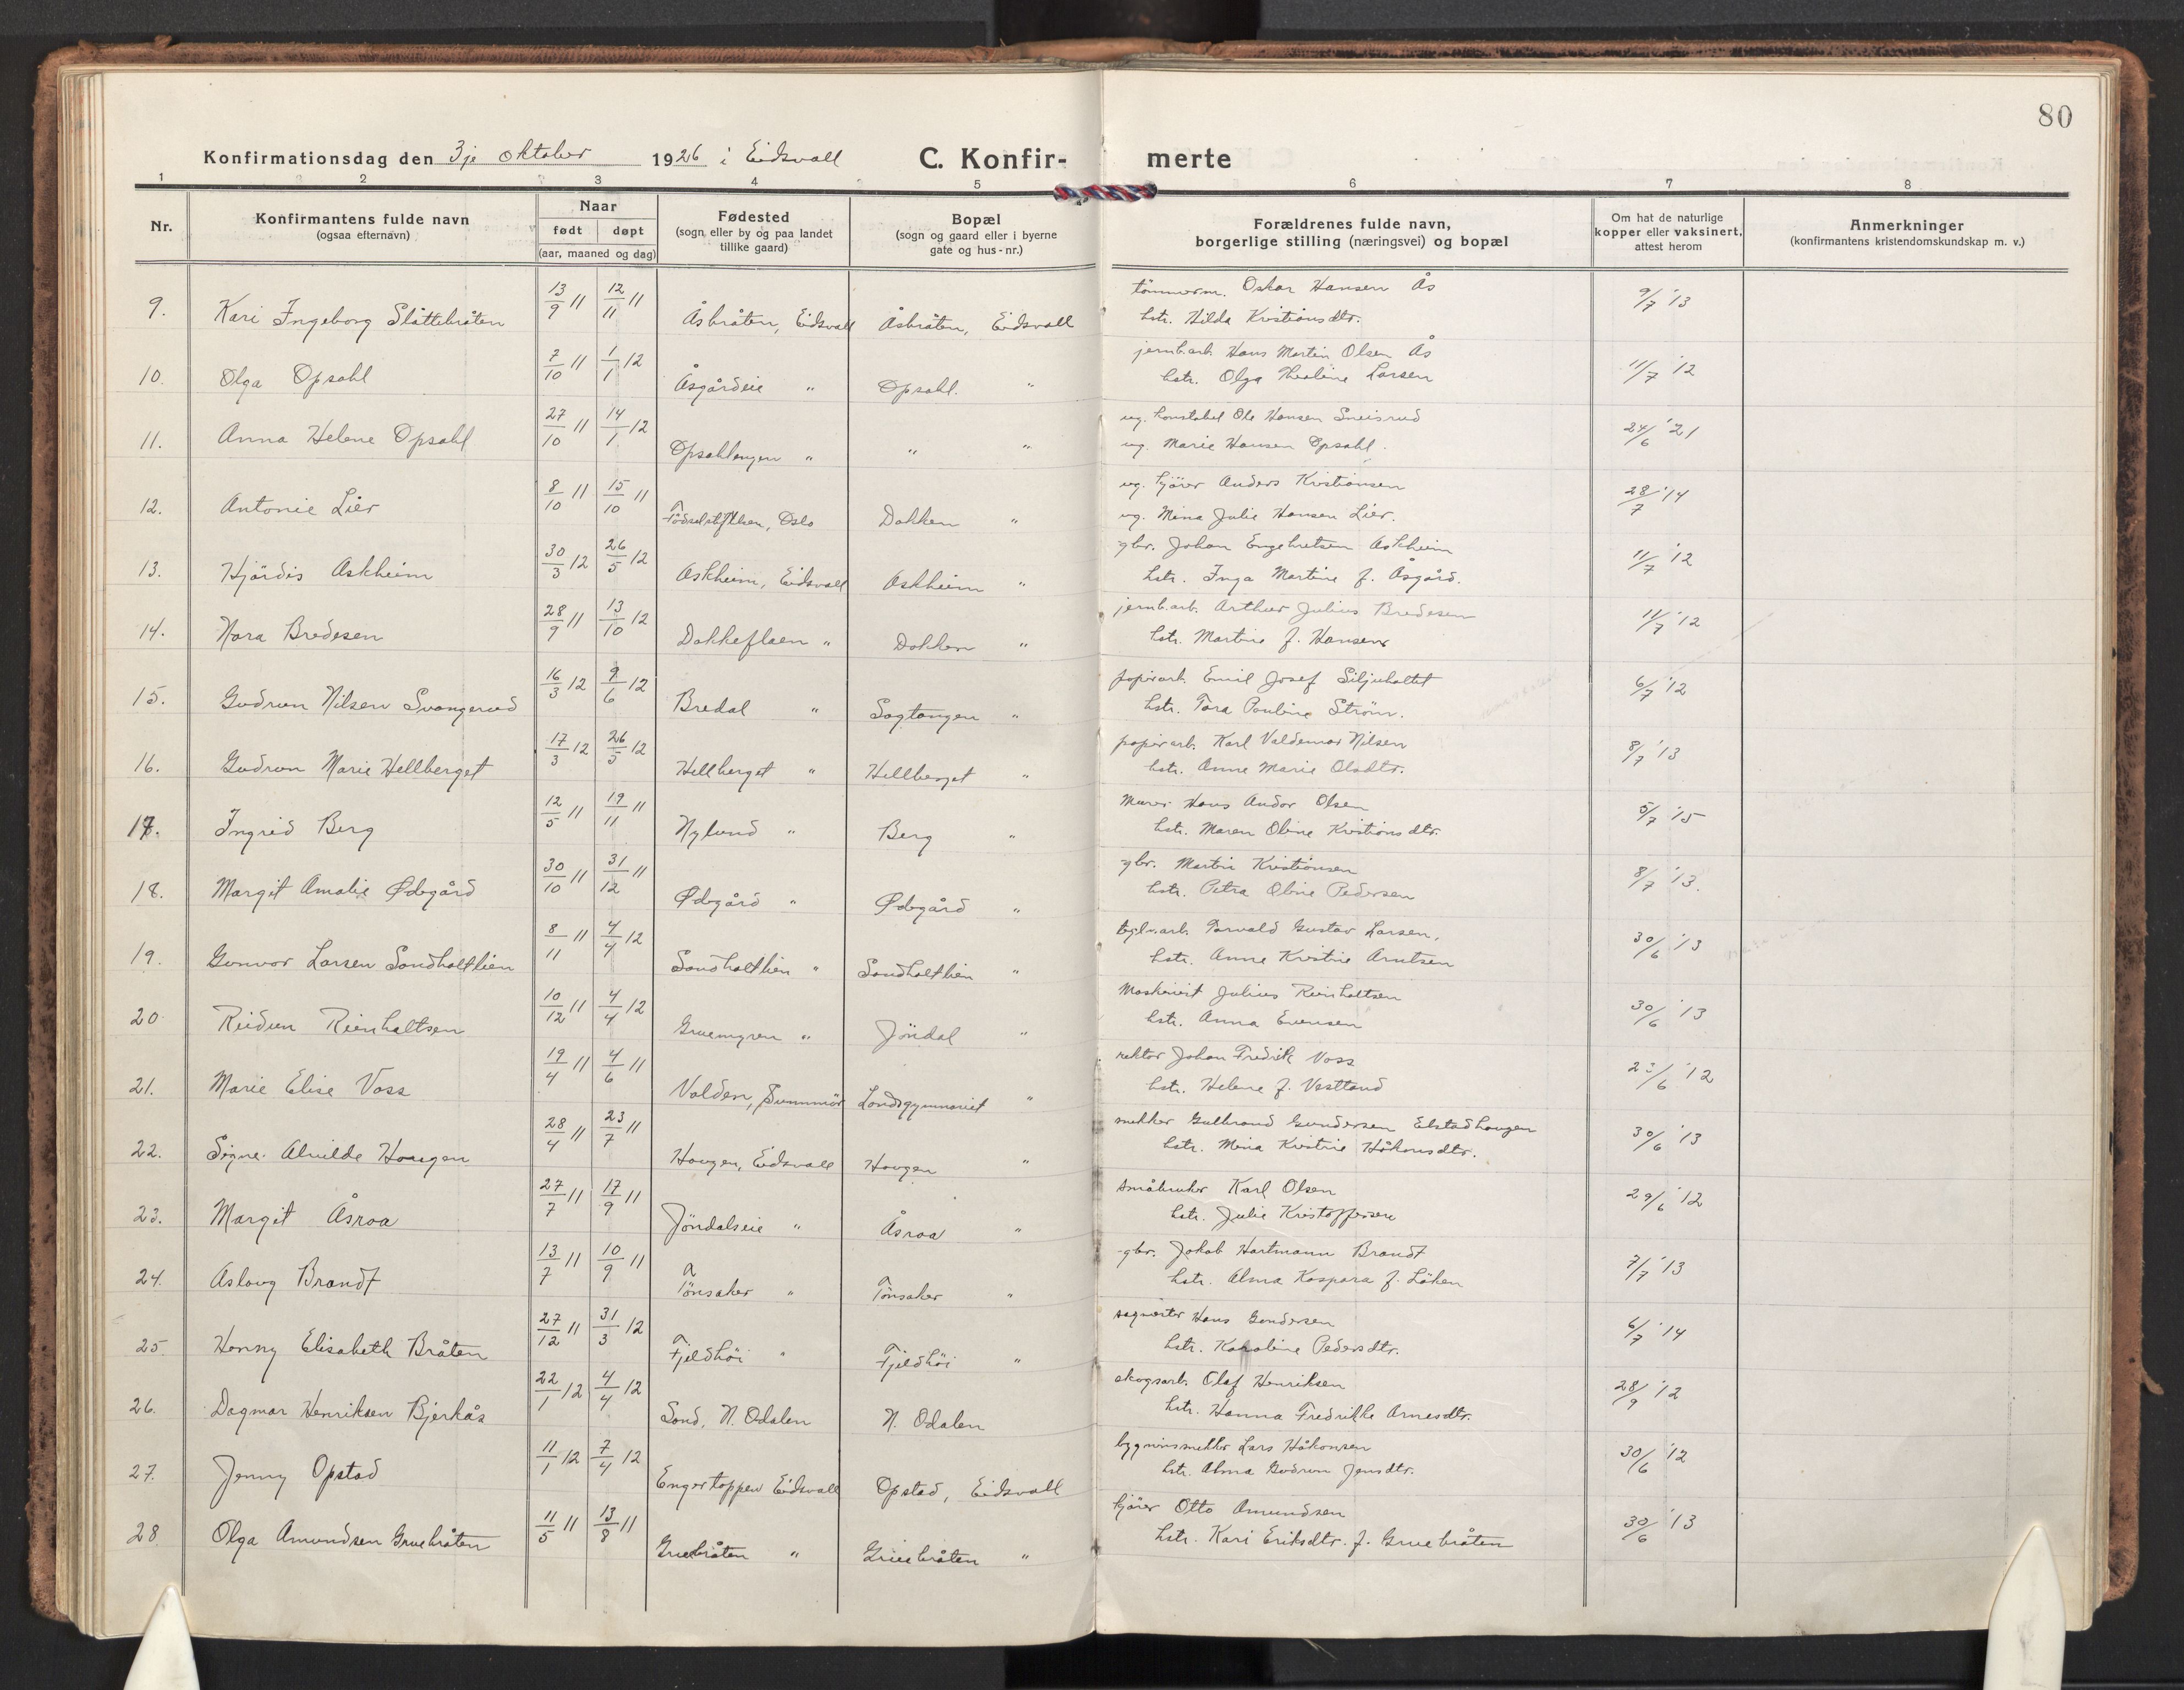 80
Konfirmationsdag den 3je oktober 1926 i Eidsvall C. Konfir- merte
1 2 3 4 5 6 7 8
Nr. Konfirmantens fulde navn (ogsaa efternavn) Naar født døpt (aar, maaned og dag) Fødested (sogn eller by og paa landet tillike gaard) Bopæl (sogn og gaard eller i byerne gate og hus-nr.) Forældrenes fulde navn, borgerlige stilling (næringsvei) og bopæl Om hat de naturlige kopper eller vaksinert, attest herom Anmerkninger (konfirmantens kristendomskundskap m. v.)
9. Kari Ingeborg Slåttebråten 13/9 11 12/11 11 Åsbråten, Eidsvall Åsbråten, Eidsvall tömmerm. Oskar Hansen Ås 9/7 '13
hstr. Hilda Kristiansdtr.
10. Olga Opsahl 7/10 11 1/1 12 Åsgårdeie " Opsahl. " jernb.arb. Hans Martin Olsen Ås 11/7 '12
hstr. Olga Thealine Larsen
11. Anna Helene Opsahl 27/10 11 14/1 12 Opsahlengen " " " ug. konstabel Ole Hansen Sneisrud 24/6 '21
ug. Marie Hansen Opsahl.
12. Antonie Lier 8/10 11 15/10 11 Födselstiftelsen, Oslo Dokken " ug. kjörer Anders Kristiansen 28/7 '14
ug. Mina Julie Hansen Lier.
13. Hjördis Askheim 30/3 12 26/5 12 Askheim, Eidsvall Askheim " gbr. Johan Engebretsen Askheim 11/7 '12
hstr. Inga Martine f. Åsgård.
14. Nora Bredesen 28/9 11 13/10 12 Dokkeflaen " Dokken " jernb.arb. Arthur Julius Bredesen 11/7 '12
hstr. Martine f. Hansen
15. Gudrun Nilsen Svangerud 16/3 12 9/6 12 Bredal " Sagtangen " papirarb. Emil Josef Siljuholtet 6/7 '12
hstr. Tora Pauline Ström.
16. Gudrun Marie Hellberget 17/3 12 26/5 12 Hellberget " Hellberget " papirarb. Karl Valdemar Nilsen 8/7 '13
hstr. Anne Marie Olsdtr.
17. Ingrid Berg 12/5 11 19/11 11 Nylund " Berg " Murer Hans Andor Olsen 5/7 '15
hstr. Maren Oline Kristiansdtr.
18. Margit Amalie Ødegård 30/10 11 31/12 11 Ødegård " Ødegård " gbr. Martin Kristiansen 8/7 '13.
hstr. Petra Oline Pedersen
19. Gunvor Larsen Sandholtlien 8/11 11 4/4 12 Sandholtlien " Sandholtlien " teglv.arb. Torvald Gustav Larsen, 30/6 '13
hstr. Anna Kristine Arntsen
20. Reidun Rienholtsen 10/12 11 4/4 12 Gruemyren " Jöndal " Maskinist Julius Rienholtsen 30/6 '13
hstr. Anna Evensen
21. Marie Elise Voss 19/4 11 4/6 11 Volden, Sunnmör Landsgymnasiet " rektor Johan Fredrik Voss 23/6 '12
hstr. Helene f. Vestland
22. Signe Alvilde Haugen 28/4 11 23/7 11 Haugen, Eidsvall Haugen " snekker Gulbrand Gundersen Elstadhaugen 30/6 '13
hstr. Mina Kristine Håkonsdtr.
23. Margit Åsroa 27/7 11 17/9 11 Jöndalseie " Åsroa " småbruker Karl Olsen 29/6 '12
hstr. Julie Kristoffersen
24. Aslaug Brandt 13/7 11 10/9 11 Tönsaker " Tönsaker " gbr. Jakob Hartmann Brandt 7/7 '13
hstr. Alma Kaspara f. Löken
25 Henny Elisabeth Bråten 27/12 11 31/3 12 Fjeldhöi " Fjeldhöi " sagmester Hans Gundersen 6/7 '14
hstr. Karoline Pedersdtr.
26. Dagmar Henriksen Bjerkås 22/1 12 4/4 12 Sand, N. Odalen N. Odalen skogsarb. Olaf Henriksen 28/9 '12
hstr. Hanna Fredrikke Arnesdtr.
27. Jenny Opstad 11/1 12 7/4 12 Engertoppen Eidsvall Opstad, Eidsvall bygninsnekker Lars Håkonsen 30/6 '12
hstr. Alma Gudrun Jensdtr.
28 Olga Amundsen Gruebråten 11/5 11 13/8 11 Gruebråten " Gruebråten " kjörer Otto Amundsen 30/6 '13
hstr. Kari Eriksdtr. f. Gruebråten